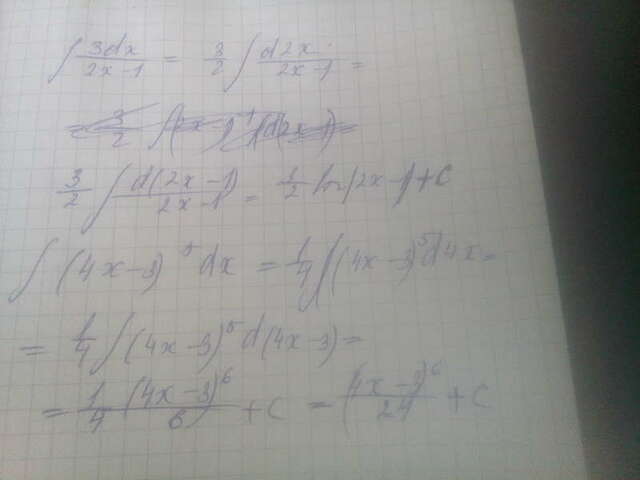 ∫ 3dx/(2x-1) = 3/2 ∫ d2x/(2x-1) =
3/2 ∫ d(2x-1)/(2x-1) = 1/2 ln|2x-1|+C
∫ (4x-3)^5 dx = 1/4 ∫ (4x-3)^5 d4x =
= 1/4 ∫ (4x-3)^5 d(4x-3) =
= 1/4 (4x-3)^6/6 + C = (4x-3)^6/24 + C